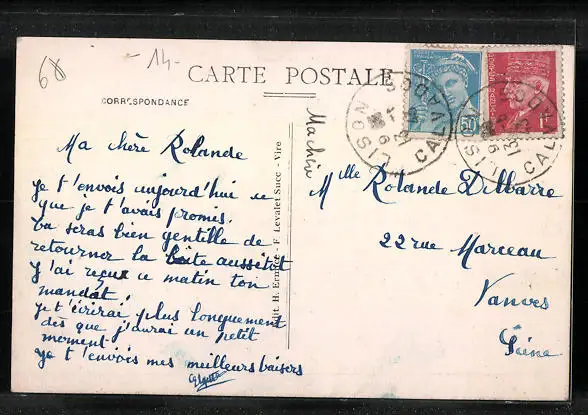 68
- 14 -
CARTE POSTALE
CORRESPONDANCE
Ma chère Rolande
je t'envois aujourd'hui ce
que je t'avais promis.
tu seras bien gentille de
retourner la boite aussitôt
j'ai reçue ce matin ton
mandat,
je t'écrirai plus longuement
dès que j'aurai un petit
moment
je t'envois mes meilleurs baisers
Edit. H. Ermice - F. Levalet Succ - Vire
Mlle Rolande Delbarre
22 rue Marceau
Vanves
Seine
50
1F
ISIGNY
CALVADOS
CALVADOS